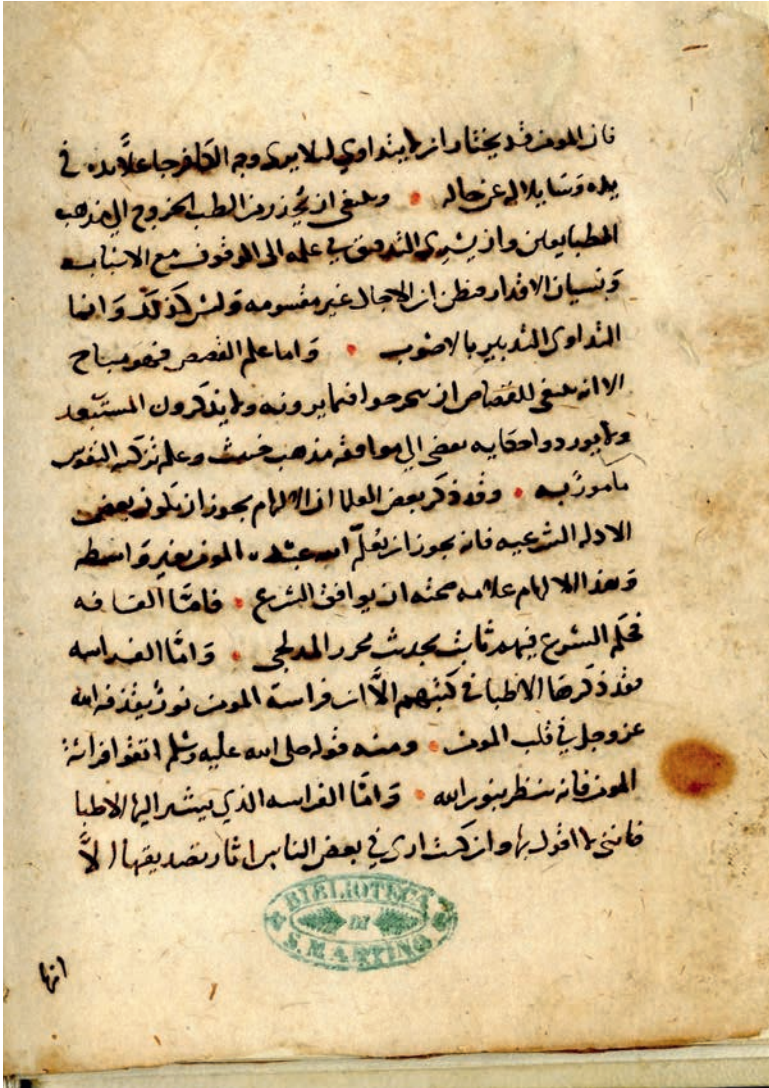 فان المومن قد يختار ان لا يتداوى ليلا يرى وجه الكافر جاعلا يده في
يده وسايلا له عن حاله • وينبغي ان يحذر من الطب الخروج الى مذهب
الطبايعين وان يسرى التدقيق في علمه الى الوقوف مع الاسباب
ونسيان الاقدار فيظن ان الاجال غير مقسومه وليس كذلك وانما
التداوى التدبير بالاصوب • واما علم القصص فهو مباح
الا انه ينبغي للقصاص ان يتحرجوا فيما يروونه ولا يذكرون المستبعد
ولا يوردوا حكايه تفضى الى موافقه مذهب خبيث وعلم تزكيه النفوس
مامور به • وقد ذكر بعض العلما ان الالهام يجوز ان يكون بعض
الادله الشرعيه فانه يجوز ان يعلم الله عبده المومن بغير واسطه
وهذا الالهام علامه صحته ان يوافق الشرع • فاما القافه
فحكم الشرع فيهم ثابت بحديث مجزز المدلجى • واما الفراسه
فقد ذكرها الاطبا في كتبهم الا ان فراسة المومن نور يقذفه الله
عز وجل في قلب المومن • ومنه قوله صلى الله عليه وسلم اتقوا فراسة
المومن فانه ينظر بنور الله • واما الفراسه الذي يشير اليها الاطبا
فانني لا اقول بها وان كنت ارى في بعض الناس اثار تصديقها الا
BIBLIOTECA
DI
S. MARTINO
انها